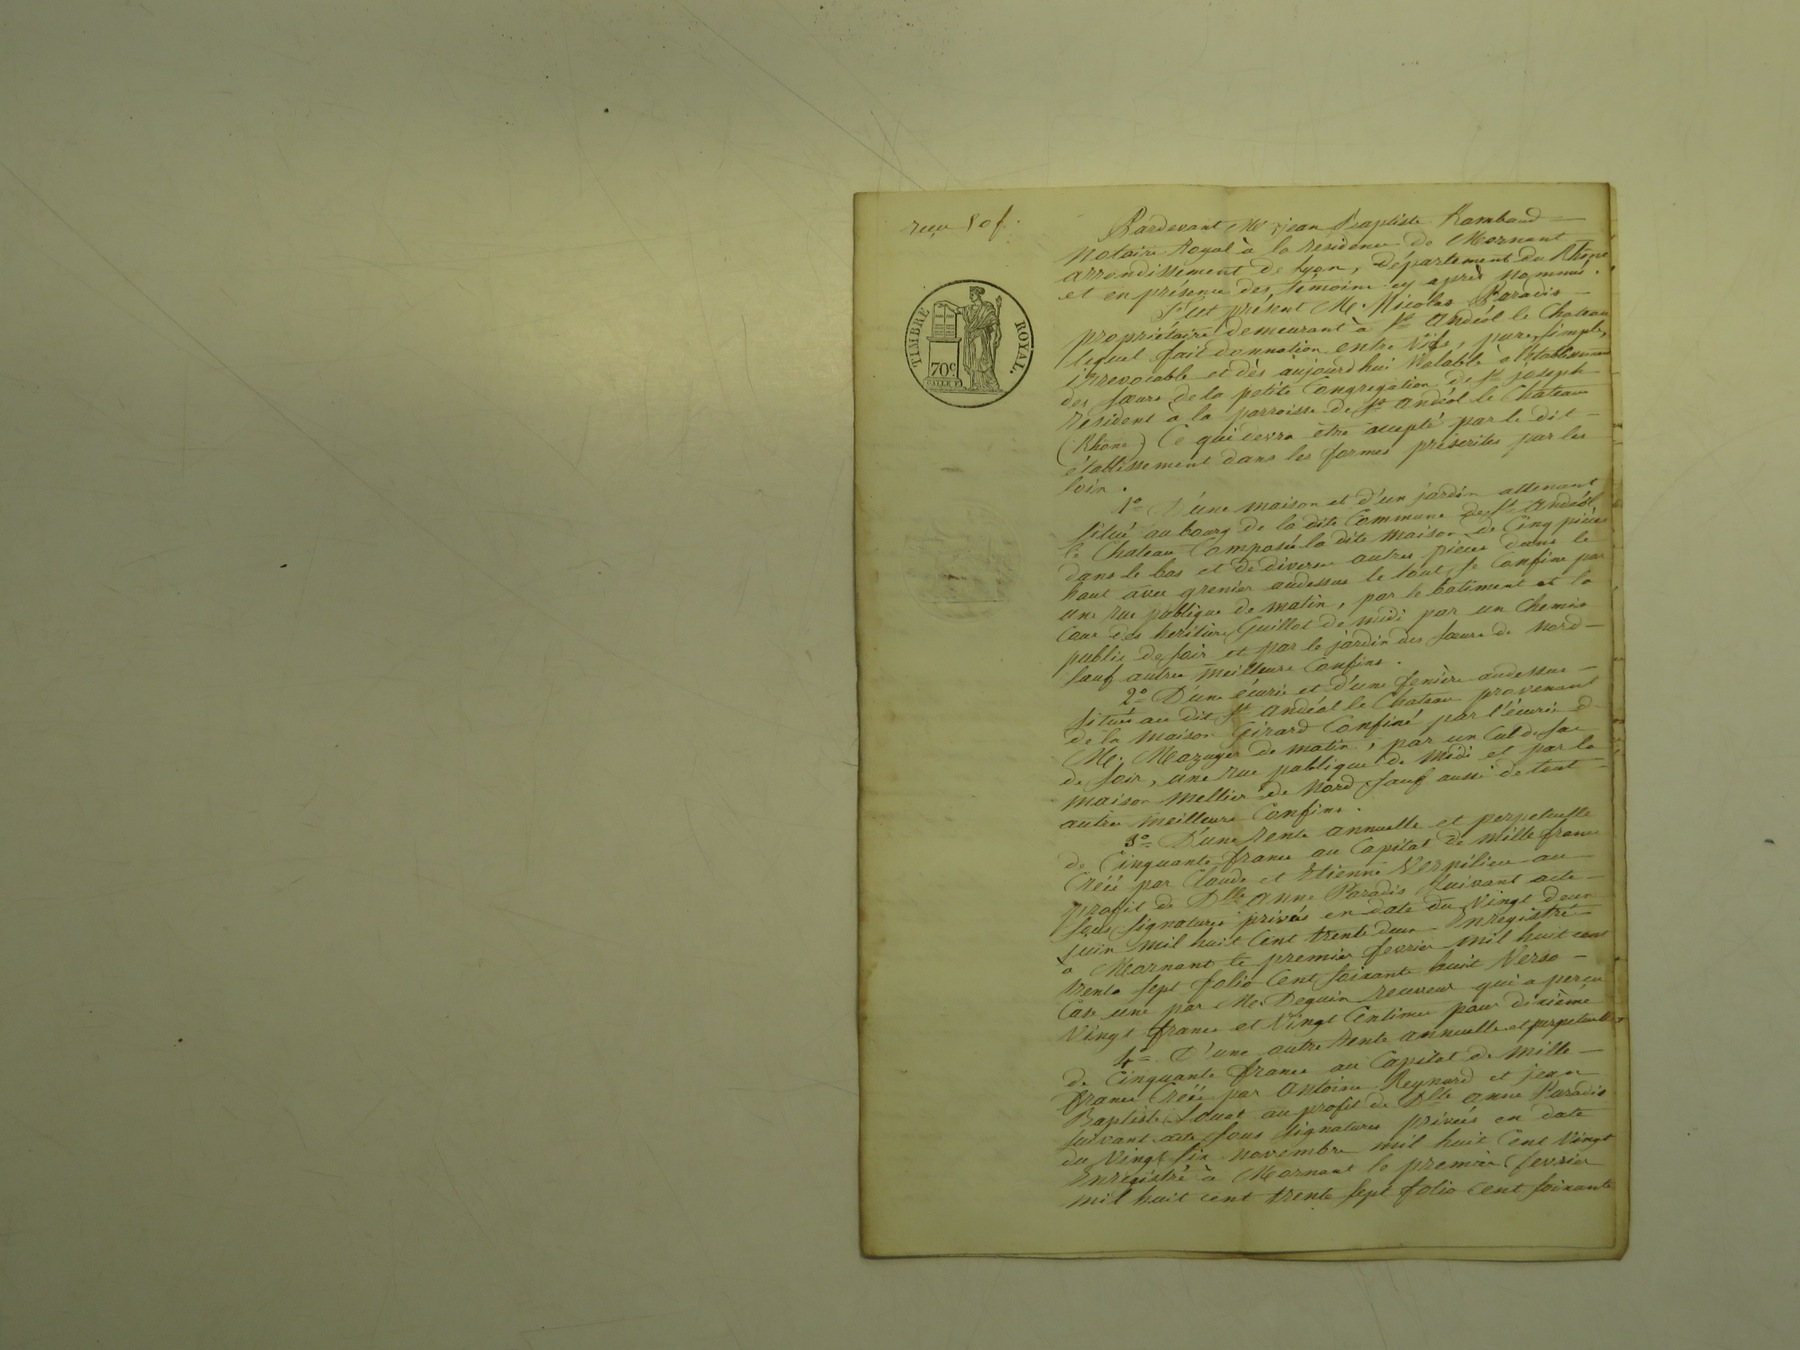 reçu 80 f.
TIMBRE ROYAL.
70c
Pardevant Me jean Baptiste Rambaud
Notaire Royal à la residence de Mornant
arrondissement de Lyon, département du Rhône
et en présence des témoins cy après nommés.
S'est présent Mr. Nicolas Paradis
propriétaire demeurant à St Andéol le Chateau
lequel fait donnation entre vifs, pure, simple,
irrevocable et dès aujourdhui valable à l'établissement
des sœurs de la petite Congregation de St joseph
résident à la parroisse de St Andéol le Chateau
(Rhône) Ce qui devra être accepté par le dit
établissement dans les formes préscrites par les
loix.
1o D'une maison et d'un jardin attenant
situé au bourg de la dite Commune de St Andéol
le Chateau Composée la dite maison de Cinq pièces
dans le bas et de diverses autres pièces dans le
haut avec grenier audessus le tout se Confine par
une rue publique de matin, par le batiment et la
Cour des heritiers Guillot de midi par un Chemin
public de soir et par le jardin des sœurs de Nord
sauf autres meilleurs Confins.
2o D'une écurie et d'une fenière audessus
situés au dit St Andéol le Chateau provenant
de la maison Girard Confiné par l'écurie de
Mr. Mazuyer de matin, par un Cul de sac
de soir, une rue publique de Midi et par la
maison Mellier de Nord sauf aussi de tout
autres meilleurs Confins.
3o D'une rente annuelle et perpetuelle
de Cinquante francs au Capital de mille francs
Créée par Claude et Etienne Verpilieu au
profit de Dlle Anne Paradis suivant acte
sous signatures privées en date du vingt deux
juin mil huit Cent trente deux Enregistré
à Mornant le premier fevrier mil huit cent
trente sept folio Cent soixante huit Verso
Case une par Mr. Deguin receveur qui a perçu
Vingt francs et Vingt Centimes pour dixième
4o D'une autre rente annuelle et perpetuelle
de Cinquante francs au Capital de mille
francs Créée par Antoine Reynard et jean
Baptiste au profit de Dlle Anne Paradis
suivant acte sous signatures privées en date
du Vingt six novembre mil huit Cent Vingt
Enrégistré à Mornant le premier fevrier
mil huit cent trente sept folio cent soixante